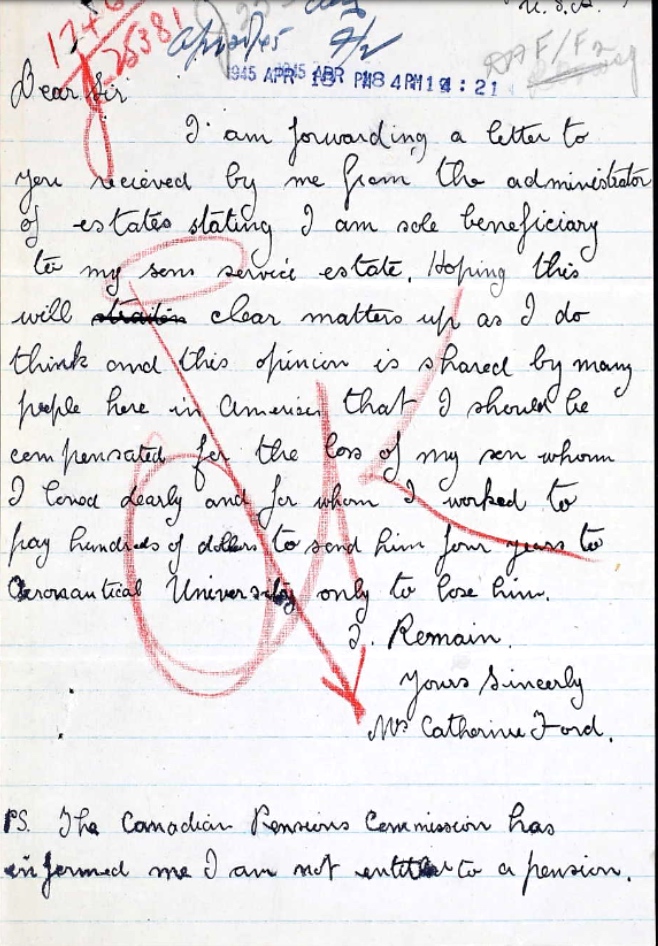 U.S.A.
25381
1945 APR 18 PM 4 PM 12 : 21
Dear Sir
I am forwarding a letter to
you recieved by me from the administrator
of estates stating I am sole beneficiary
to my sons service estate. Hoping this
will clear matters up as I do
think and this opinion is shared by many
people here in America that I should be
compensated for the loss of my son whom
I loved dearly and for whom I worked to
pay hundreds of dollars to send him four years to
Aeronautical University only to lose him.
I. Remain.
Yours Sincerly
Mrs Catherine Ford.
PS. The Canadian Pensions Commission has
informed me I am not entitled to a pension.